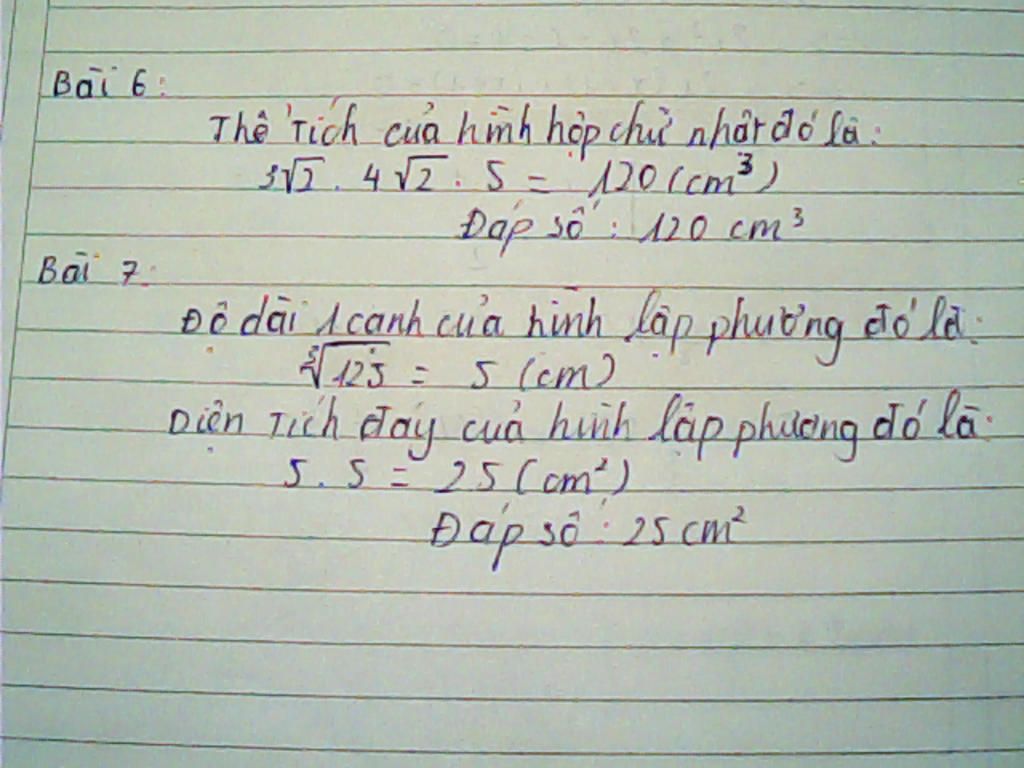 Bài 6:
Thể tích của hình hộp chữ nhật đó là:
3√2 . 4√2 . 5 = 120 (cm³)
Đáp số : 120 cm³
Bài 7:
Độ dài 1 cạnh của hình lập phương đó là:
∛125 = 5 (cm)
Diện tích đáy của hình lập phương đó là:
5 . 5 = 25 (cm²)
Đáp số : 25 cm²